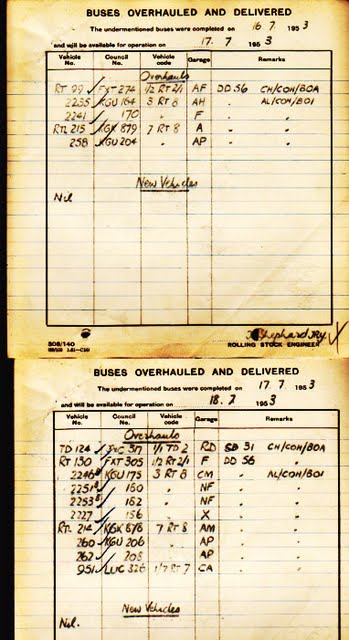 BUSES OVERHAULED AND DELIVERED
The undermentioned buses were completed on 16.7 1953
and will be available for operation on 17.7 1953
Vehicle No. Council No. Vehicle code Garage Remarks
Overhauls
RT 99 FXT 274 1/2 RT 2/1 AF DD 56 CH/COH/BOA
2255 KGU 164 3 RT 8 AH AL/COH/BOI
2241 170 " F "
RTL 215 KGK 879 7 RT 8 A "
258 KGU 204 " AP "
New Vehicles
Nil
Shephard
ROLLING STOCK ENGINEER
BUSES OVERHAULED AND DELIVERED
The undermentioned buses were completed on 17.7 1953
and will be available for operation on 18.7 1953
Vehicle No. Council No. Vehicle code Garage Remarks
Overhauls
TD 124 1/1 TD 2 RD SD 31 CH/COH/BOA
RT 130 FXT 305 1/2 RT 2/1 F DD 56 "
2246 KGU 175 3 RT 8 CM AL/COH/BOI
2251 160 " NF "
2253 162 " NF "
2227 156 " X "
RTL 214 KGK 878 7 RT 8 AM "
260 KGU 206 " AP "
262 208 " AP "
951 LUC 326 1/7 RT 7 CA
New Vehicles
Nil.